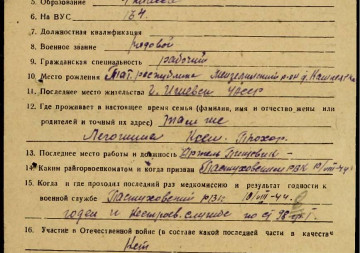 5. Образование
6. На ВУС 134
7. Должностная квалификация
8. Военное звание рядовой
9. Гражданская специальность рабочий
10. Место рождения Тат. республика Мензелинский р-он д.
11. Последнее место жительства г. Ижевск УАССР
12. Где проживает в настоящее время семья (фамилия, имя и отчество жены или
родителей и точный их адрес) Там же
13. Последнее место работы и должность Артель
14. Каким райгорвоенкоматом и когда призван Пастуховским РВК
15. Когда и где проходил последний раз медкомиссию и результат годности к
военной службе Пастуховский РВК
годен к нестроев. службе по ст.
16. Участие в Отечественной войне (в составе какой последней части в качеств
Нет